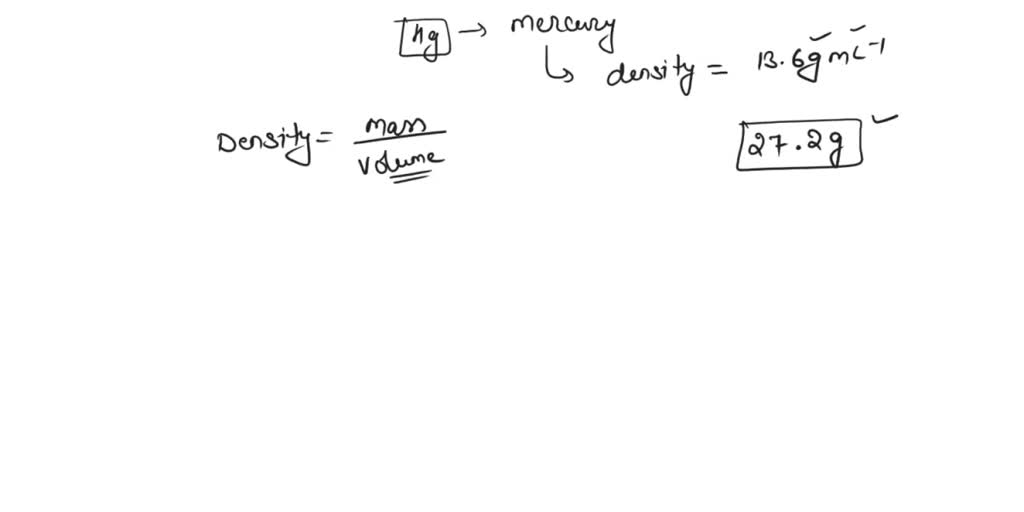 Hg → mercury
↳ density = 13.6 g mL⁻¹
Density = mass / volume
27.2g